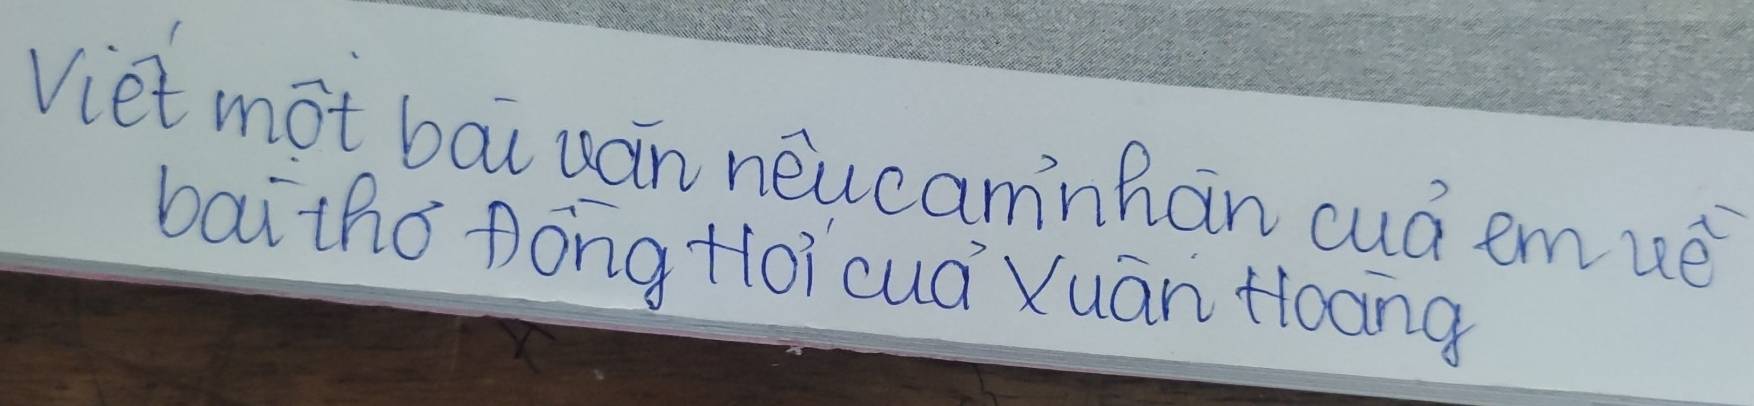 Viết một bài văn nêu cảm nhận của em về
bài thơ Đồng Hới của Xuân Hoàng